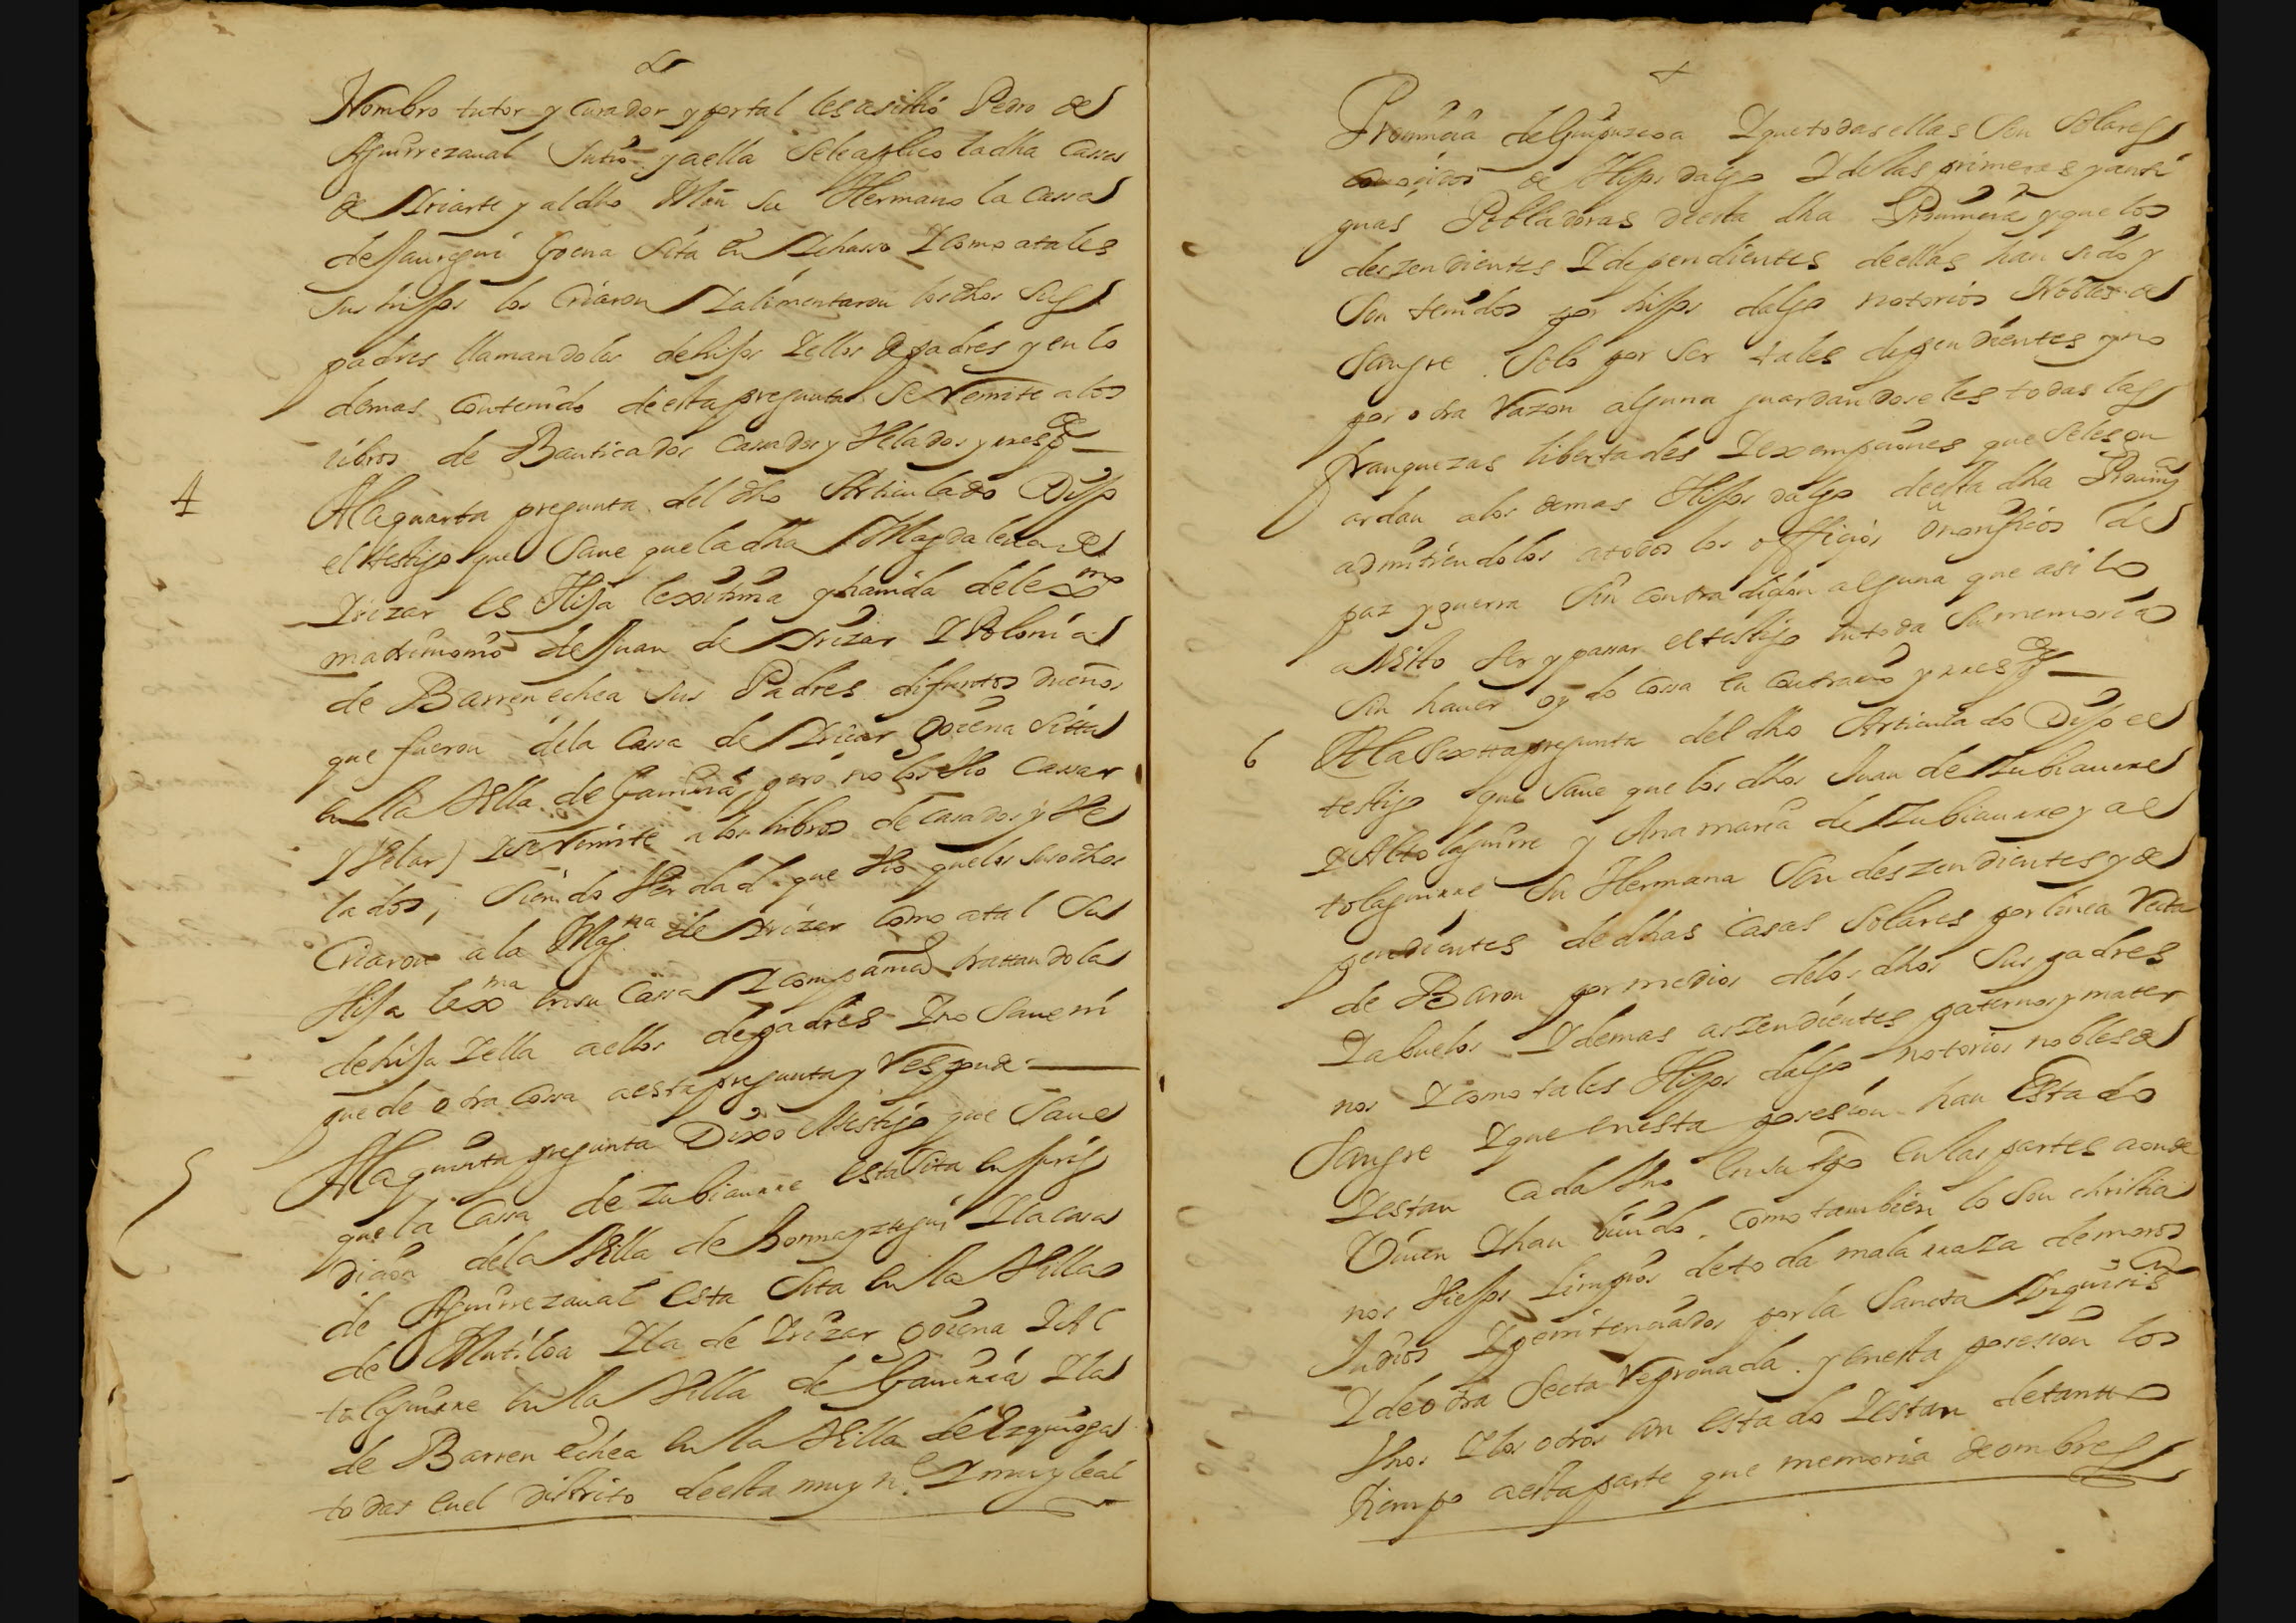 Nombro tutor y curador y por tal les asistió Pedro de
Aguirrezaual su tio y a ella se le aplico la dha Cassa
de Iriarte y al dho Mrn su Hermano la Cassa
de Jauregui Goena sita en Ichasso Y como a tales
sus hijos los criaron Y alimentaron los dhos sus
padres llamandolos de hijos Y ellos de padres y en lo
demas contenido de esta pregunta se Remite a los
libros de Bauticados cassados y Velados y rresde
4
A la quarta pregunta del dho Articulado Dijo
el testigo que saue que la dha Magdalena de
Irizar es Hija lexitima y hauida de lexmo
matrimonio de Juan de Irizar Y Polonia
de Barrenechea sus Padres difuntos dueños
que fueron de la Cassa de Iricar goiena sitta
en la Villa de Gauiria, pero no los Vio cassar
Y Velar Y se Remite a los libros de casados y Ve
lados, siendo Verdad que Vio que los susodhos
Criaron a la Magna de Irizar como a tal su
Hija lexma en su Cassa Y compañia trattandola
de hija Y ella a ellos de padres Y no saue ni
puede otra cossa a esta pregunta y Respde
5
A la quinta pregunta Dixo el testigo que saue
que la Cassa de Zubiaurre esta sita en juris
dicion de la Villa de Hormayztegui Y la casa
de Aguirrezaual esta sita en la Villa
de Mutiloa Y la de Irizar goiena Y Al
tolaguirre en la Villa de Gauiria Y la
de Barrenechea en la Villa de Ezquioga
todas en el distrito de esta muy ne Y muy leal
Prouincia de Guipuzcoa Y que todas ellas son solares
conocidos de Hijosdalgo Y de las primeras y anti
guas Pobladoras de esta dha Prouincia y que los
deszendientes Y dependientes de ellas han sido y
son tenidos por hijos dalgo notorios Nobles de
sangre solo por ser tales dependientes y no
por otra Razon alguna guardandoseles todas las
franquezas libertades Y exempciones que se les gu
ardan a los demas Hijos dalgo de esta dha Prouina
admitiendolos a todos los officios onorificos de
paz y guerra sin contradicion alguna que asi lo
a Visto ser y passar el testigo en toda su memoria
sin hauer oydo cossa en contrario y rresde
6
A la Sextta pregunta del dho Articulado Dijo el
testigo que saue que los dhos Juan de Zubiaurre
Y Altolaguirre y Ana maria de Zubiaurre y al
tolaguirre su Hermana son deszendientes y de
pendientes de dhas casas solares por linea Recta
de Baron por medios de los dhos sus padres
Y abuelos Y demas aszendientes paternos y mater
nos Y como tales Hijos dalgo notorios nobles de
sangre Y que en esta posesion han Estado
Y estan cada Vno en su tpo en las partes a onde
Viuen Y han biuido, como tambien lo son christia
nos Viejos limpios de toda mala rraza de moros
Judios Y penitenciados por la Sancta Inquisision
Y de otra Secta Reprouada. y en esta posesion los
Vnos Y los otros an estado Y estan de tantto
tiempo a esta parte que memoria de ombres